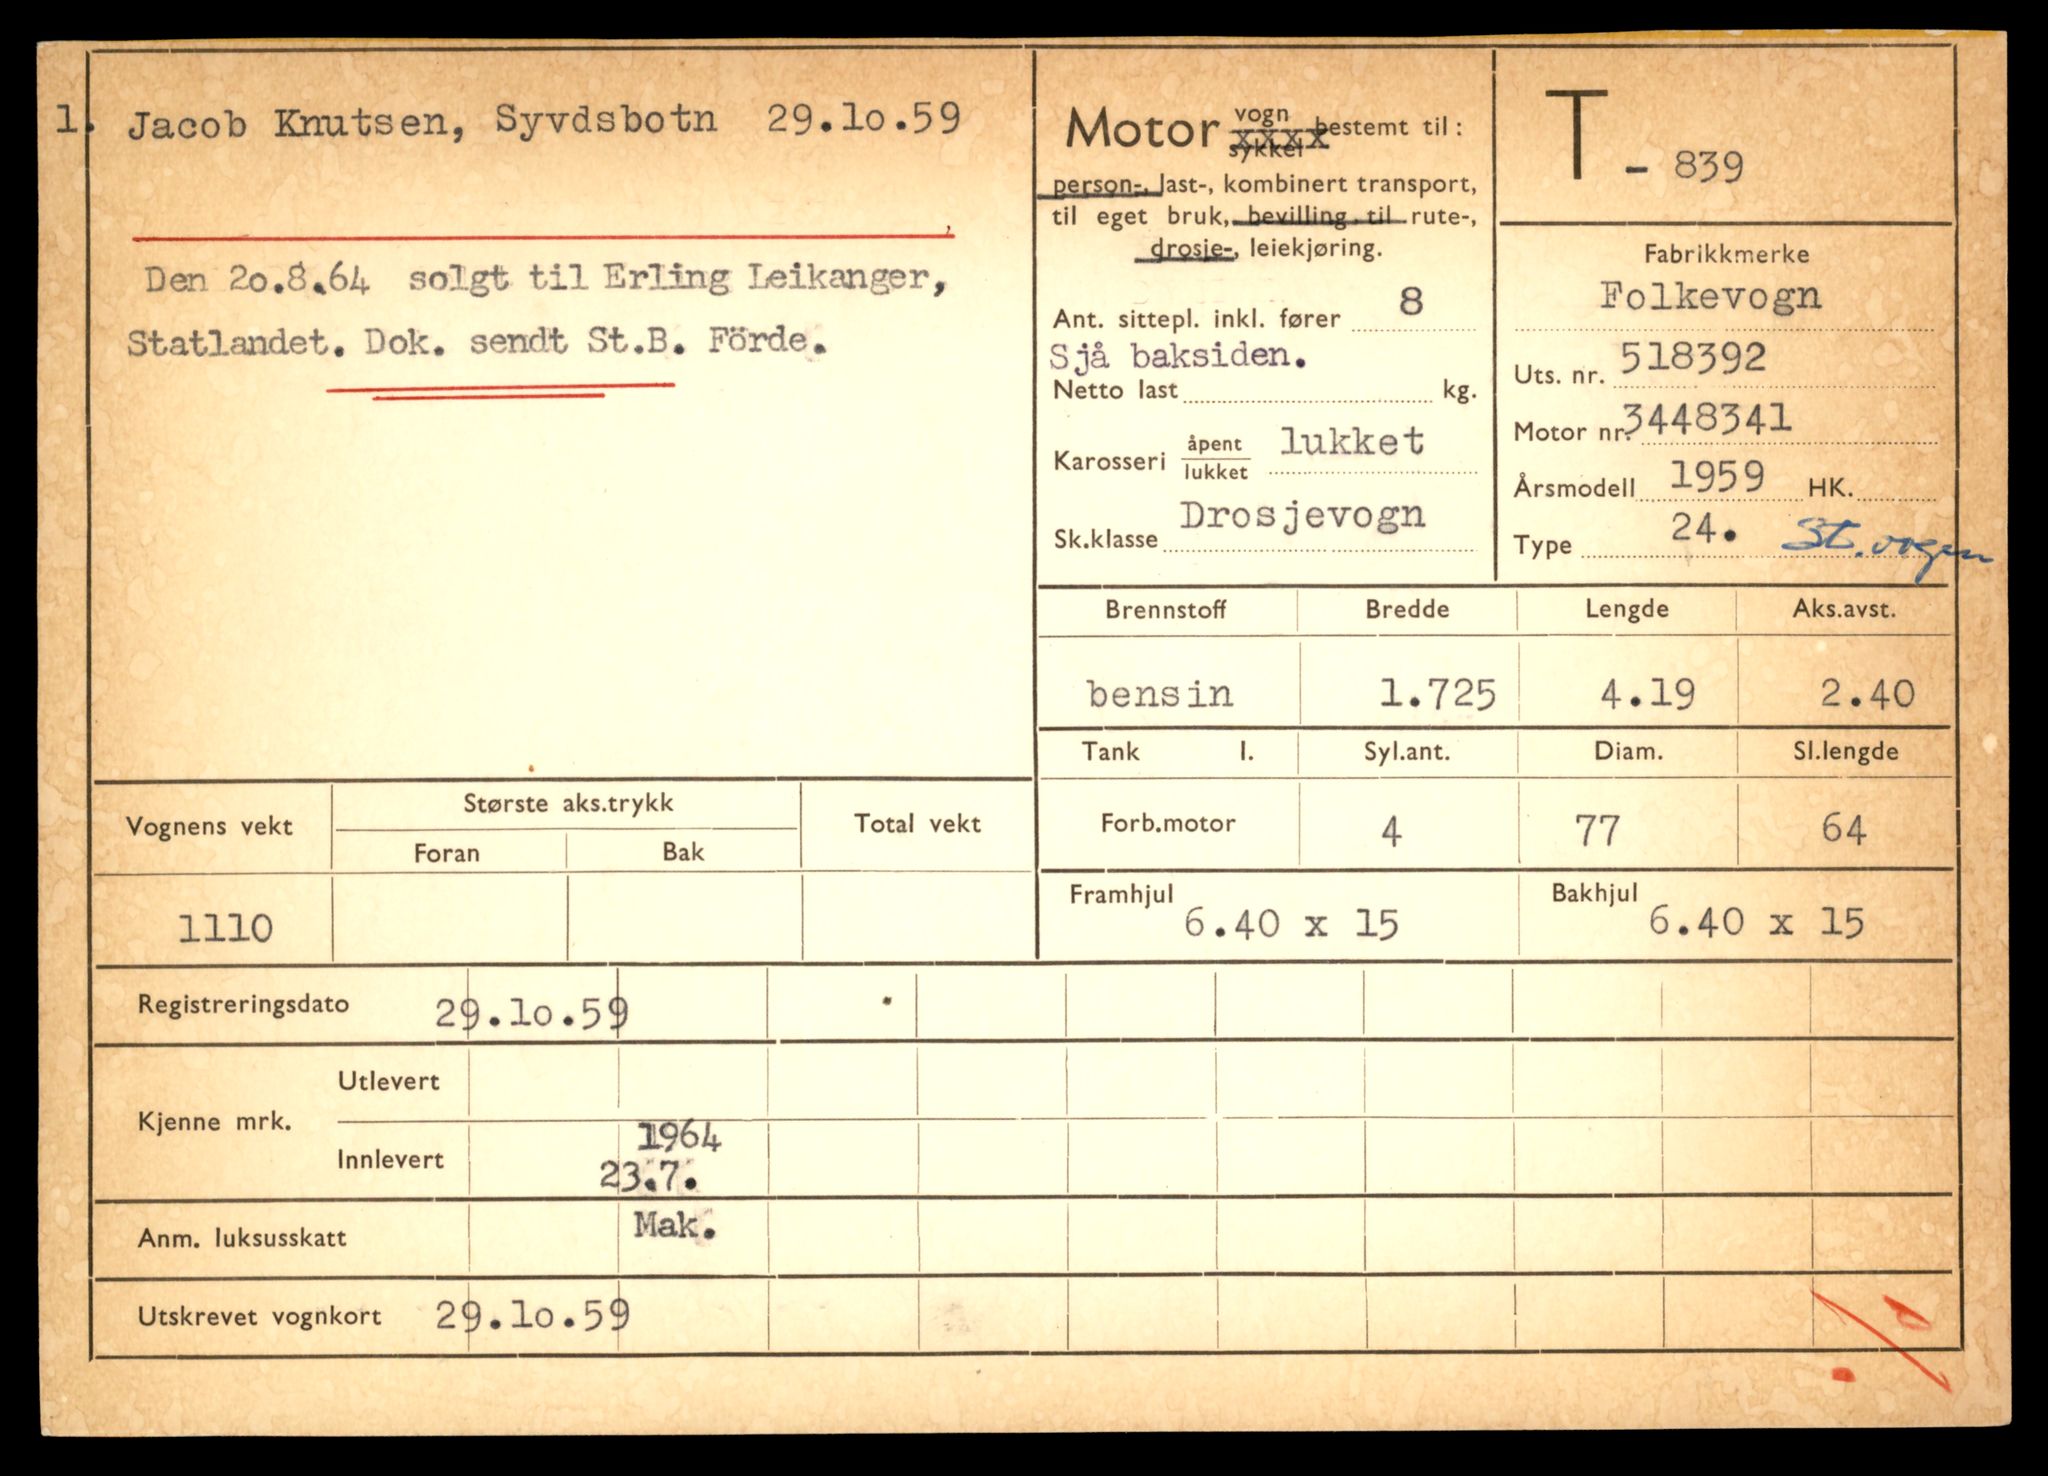 1. Jacob Knutsen, Syvdsbotn 29.10.59
Den 20.8.64 solgt til Erling Leikanger,
Statlandet. Dok. sendt St.B. Förde.
Motor vogn
sykkel
xxxx
bestemt til:
person-, last-, kombinert transport,
til eget bruk, bevilling til rute-,
drosje-, leiekjøring.
Ant. sittepl. inkl. fører 8
Sjå baksiden.
Netto last kg.
Karosseri åpent
lukket
lukket
Sk.klasse Drosjevogn
T - 839
Fabrikkmerke
Folkevogn
Uts. nr. 518392
Motor nr. 3448341
Årsmodell 1959 HK.
Type 24. St.vogn
Brennstoff Bredde Lengde Aks.avst.
bensin 1.725 4.19 2.40
Tank l. Syl.ant. Diam. Sl.lengde
Forb.motor 4 77 64
Framhjul 6.40 x 15 Bakhjul 6.40 x 15
Vognens vekt Største aks.trykk Total vekt
Foran Bak
1110
Registreringsdato 29.10.59
Kjenne mrk. Utlevert
Innlevert 1964
23.7.
Anm. luksusskatt Mak.
Utskrevet vognkort 29.10.59